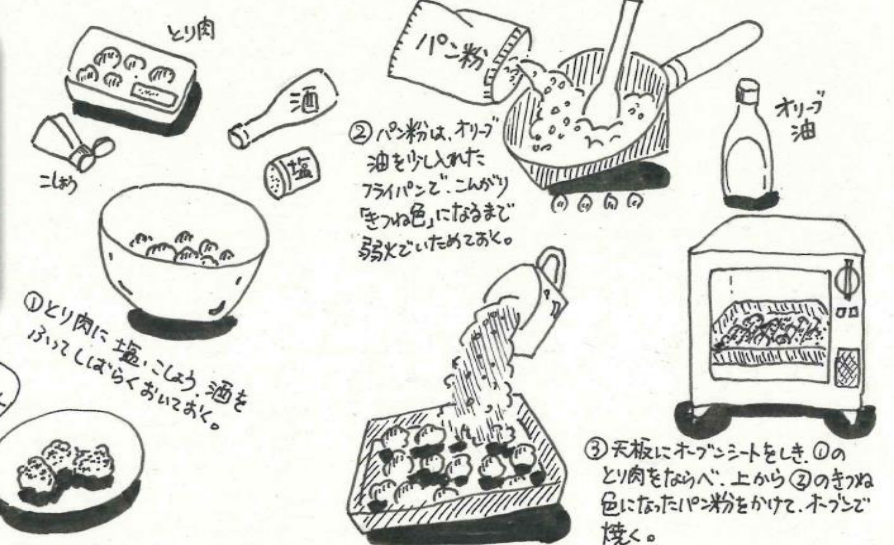 とり肉
こしょう
酒
塩
①とり肉に塩、こしょう、酒を
ふってしばらくおいておく。
パン粉
②パン粉は、オリーブ
油を少し入れた
フライパンで、こんがり
「きつね色」になるまで
弱火でいためておく。
オリーブ
油
③天板にオーブンシートをしき、①の
とり肉をならべ、上から②のきつね
色になったパン粉をかけて、オーブンで
焼く。